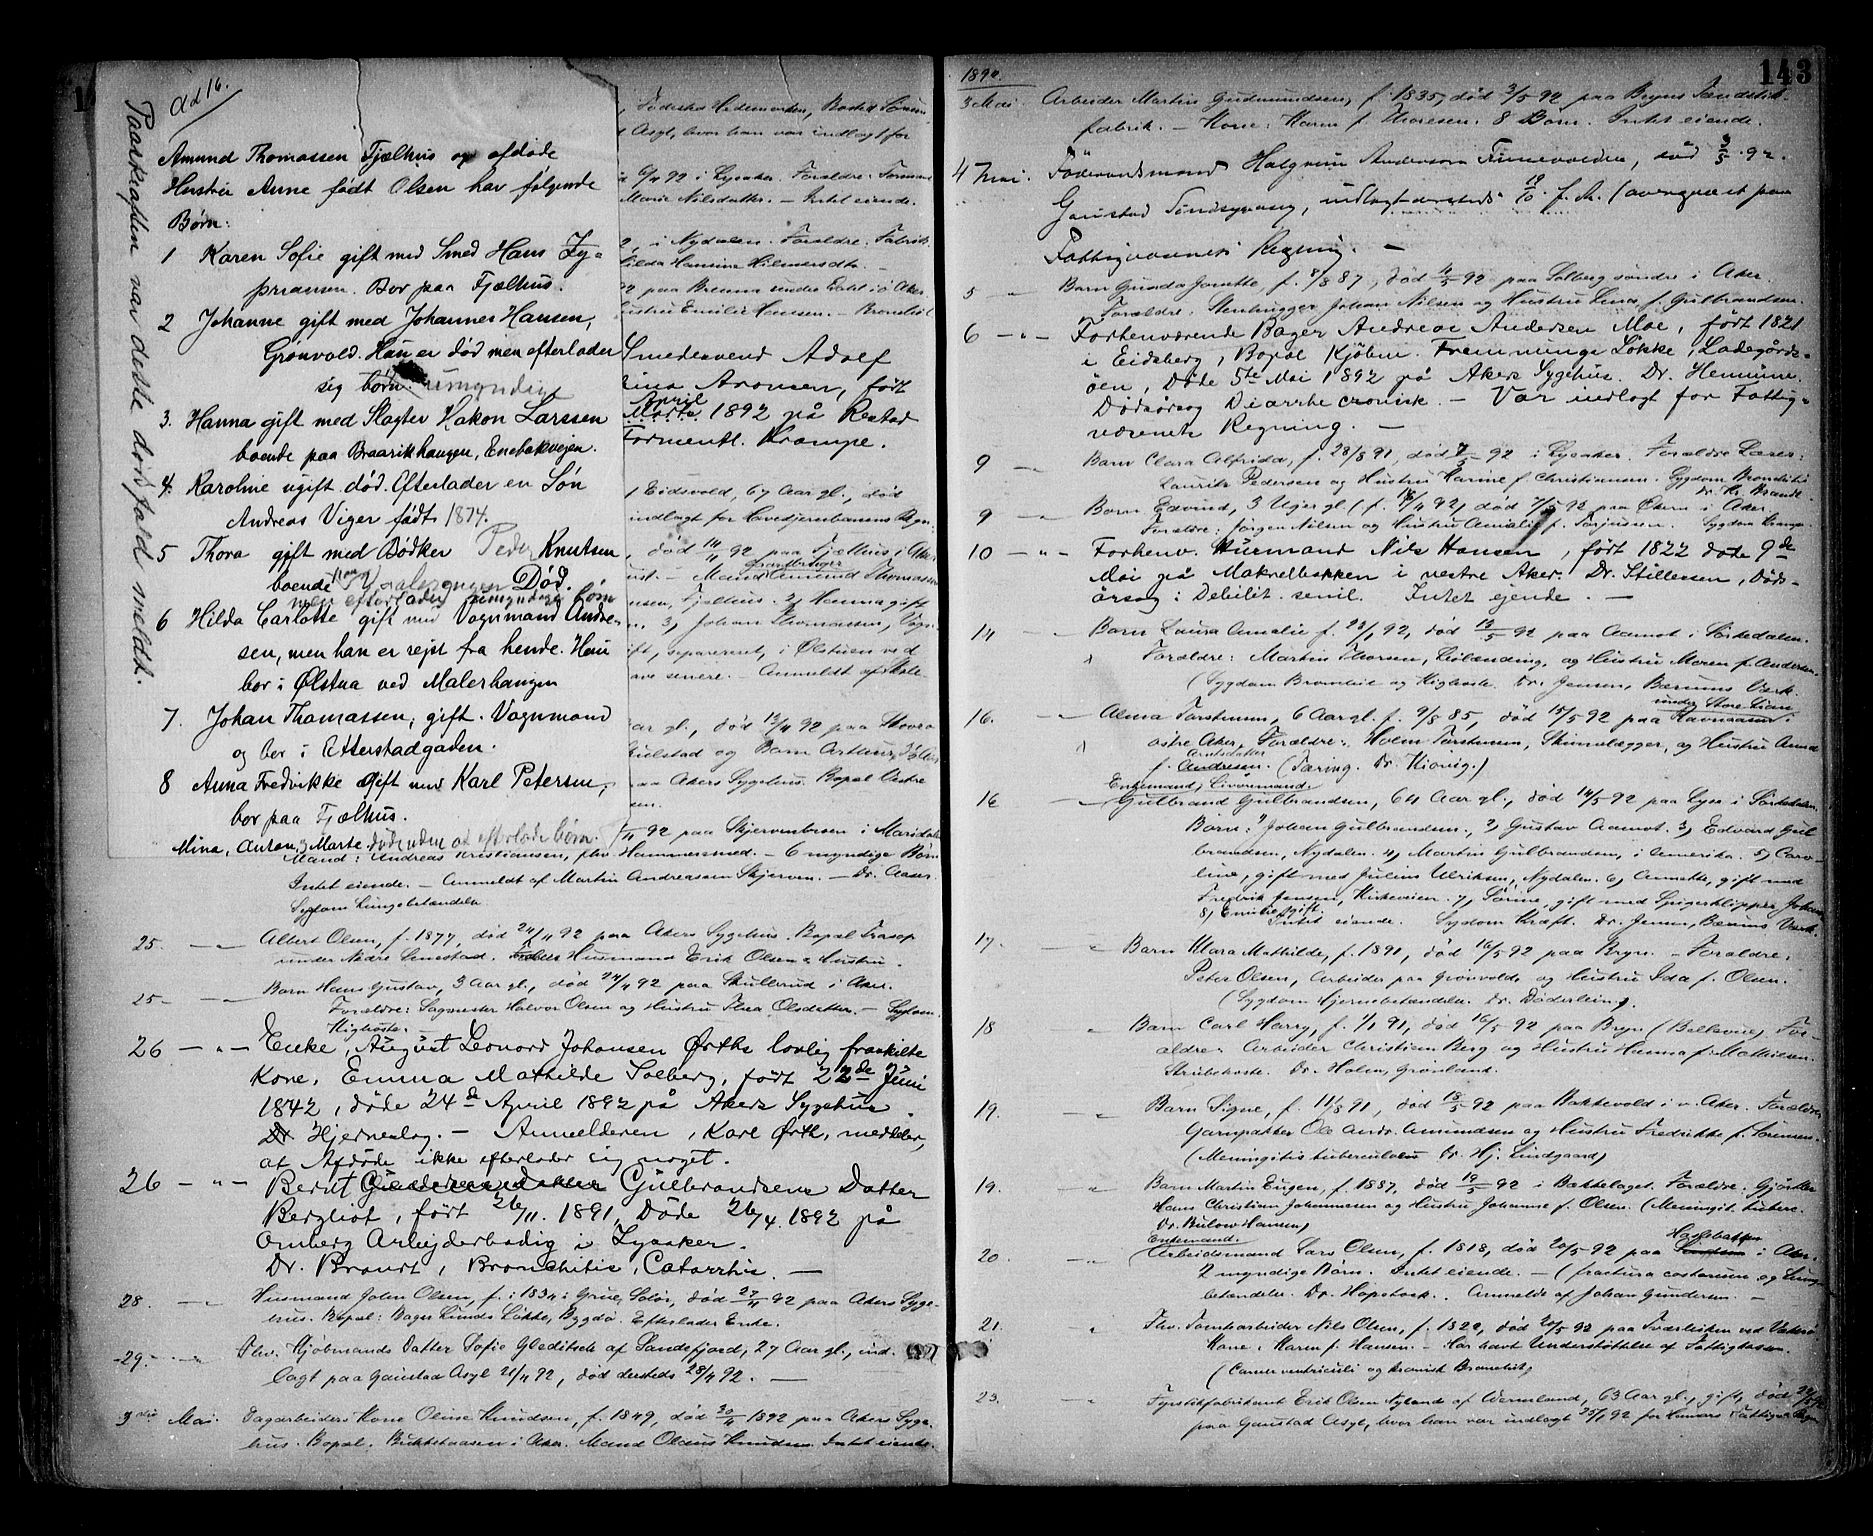 Ad 16.
Paaskraften var dette dødsfald meldt.
Amund Thomassen Fjælhus og afdøde
Hustru Anne født Olsen har følgende
Børn:
1 Karen Sofie gift med Smed Hans Zy=
priansen. Bor paa Fjælhus.
2 Johanne gift med Johannes Hansen,
Grønvold. Han er død men efterlader
sig børn. umyndige
3. Hanna gift med Slagter Hakon Larssen
boende paa Braarikhaugen, Enebakvejen.
4. Karoline ugift død. Efterlader en Søn
Andreas Viger født 1874.
5 Thora gift med Bødker Peder Knutsen
boende Vaalerengen Død.
men efterlader umyndige børn
6 Hilda Carlotte gift med Vognmand Andre=
sen, men han er rejst fra hende. Hun
bor i Ølstua ved Malerhaugen
7. Johan Thomassen, gift. Vognmand
og bor i Etterstadgaden.
8 Anna Fredrikke Gift med Karl Petersen,
bor paa Fjælhus.
Mina, Anton, Marte døde uden at efterlade børn.
, Fødested Hedemarken, Bosted
t Asyl, hvor han var indlagt for
6/4 92 i Lysaker. Forældre:
Marie Nilsdatter. – Intet eiende.
2, i Nydalen. Forældre: Fabrik
Hilda Hansine Hilmersdtr. –
92 paa Brenna under Østre Aker
Hustru Emilie Hansen. – Bronchit
Smedesvend Adolf
Aronsen, født
April
Marts 1892 på Restad
Formentl. Krampe.
Eidsvold, 67 Aar gl., død
indlagt for Hovedjernbanens Regn.
, død 14/4 92 paa Fjælhus i Aker
Gaardbruger
– Mand Amund Thomassen
Fjælhus. 2, Hanna gift
3, Johan Thomassen, Vogn
gift, separeret, i Ølstuen ved
senere. – Anmeldt af
Aar gl., død 13/4 92 paa
og Barn Arthur,
paa Akers Sygehus. Bopæl Østre
/4 92 paa Skjervenbroen i Maridalen
Mand: Andreas Kristiansen, fhv. Hammersmed. – 6 myndige Børn
Intet eiende. – Anmeldt af Martin Andreassen Skjerven. – Dr. Aaser.
Sygdom Lungebetændelse
25. – " – Albert Olsen, f. 1877, død 24/4 92 paa Akers Sygehus. Bopæl Trasop
under Nedre Limestad. Husmand Erik Olsen & Hustru.
25 – " – Barn Hans Gustav, 3 Aar gl., død 24/4 92 paa Skullerud i Aker.
Forældre: Sagmester Halvor Olsen og Hustru Thea Olsdatter. – Sygdom.
Kighoste. –
26 – " – Enke, August Leonard Johansen Ørths lovlig fraskilte
Kone, Emma Mathilde Solberg, født 22de Juni
1842, døde 24de April 1892 på Akers Sygehus.
Dr Hjerneslag. – Anmelderen, Karl Ørth, meddeler,
at Afdøde ikke efterlader sig noget.
26 – " – Berdt Gulbrandsens Datter
Bergliot, født 26/11. 1891, Døde 26/4. 1892 på
Ornberg Arbejderbolig i Lysaker.
Dr. Brandt, Bronchitis, Catarrhis. –
28. – " Husmand John Olsen, f. i 1834 i Grue, Solør, død 27/4 92 paa Akers Syge=
hus. Bopæl: Bager Lunds Løkke, Bygdø. Efterlader Enke.
29. – " – Fhv. Kjøbmands Datter Sofie Gleditsch af Sandefjord, 27 Aar gl., ind.
lagt paa Gaustad Asyl 21/4 92, død dersteds 28/4 92. –
3die Mai. Dagarbeiders Kone Oline Knudsen, f. 1849, død 30/4 1892 paa Akers Syge
hus. Bopæl. Bukkstaasen i Aker. Mand Olaus Knudsen. Intet eiende.
1892.
143
3 Mai. Arbeider Martin Gudmundsen, f. 1835, død 3/5 92 paa Bryns Tændstik.
fabrik. – Kone: Karen f. Thoresen. 8 Børn. Intet eiende.
4 Mai. Føderaadsmand Halgrim Andersen Finnevolden, død 3/5. 92.
Gaustad Sindsygeasyl, indlagt dersteds 19/10. f. A. (overgaaet paa
Fattigvæsenets Regning. –
5 – Barn Gunda Jonette, f. 8/8 87, død 4/5 92 paa Solberg søndre i Aker.
Forældre: Stenhugger Johan Nilsen og Hustru Lina f. Gulbrandsen.
6 – " – Forhenværende Bager Andreas Andersen Moe, født 1821
i Eidsberg, Bopæl Kjøbm. Fremmings Løkke, Ladegårds-
øen, Døde 5te Mai 1892 på Akers Sygehus. Dr. Henning.
Dødsårsag Diarrhe cronisk. – Var indlagt for Fattig=
væsenets Regning. –
9 – " Barn Clara Alfrida, f. 28/8 91, død 7/5 92 i Lysaker. Forældre Læser:
Laurits Pedersen og Hustru Karine f. Christiansen. Sygdom Bronchitis
Dr. Kr. Brandt.
9 – " Barn Edvind, 3 Uger gl (f. 18/4 92, død 7/5 92 paa Økern i Aker
Forældre: Jørgen Nilsen og Hustru Amalie f. Torjussen. Sygdom Krampe
10 – " – Forhenv. Husmand Nils Hansen, født 1822 døde 9de
Mai på Makrelbekken i vestre Aker. Dr. Stillesen, Døds-
årsag: Debilit. senil. Intet ejende. –
14 – " Barn Laura Amalie f. 28/1 92, død 13/5 92 paa Aamot i Sørkedalen.
Forældre: Martin Thorsen, Leilænding, og Hustru Maren f. Andersen
(Sygdom Bronchit og Kighoste. Dr. Jensen, Bærums Værk.
under Store Lian
16. – " Alma Torstensen, 6 Aar gl. f. 9/8 85, død 15/5 92 paa Ravnaasen i
østre Aker, Forældre: Holm Torstensen, Skinnelægger, og Hustru Anna
Andersdatter
f. Andresen. (Tæring. Dr. Kiønig.)
Enkemand, Livøremand.
16 – Gulbrand Gulbrandsen, 64 Aar gl., død 14/5 92 paa Lysa i Sørkedalen.
Børn: 1, Johan Gulbrandsen., 2, Gustav Aamot. 3, Edvard Gul
brandsen, Nydalen. 4, Martin Gulbrandsen, i Amerika. 5, Caro=
line, gift med Julius Ulriksen, Nydalen. 6, Annette, gift med
Fredrik Jensen, Kirkeveien. 7, Sørine, gift med Spigerklipper Johan
8, Emilie, gift.
Intet eiende. Sygdom Kræft. Dr. Jensen, Bærums Værk.
17. – " Barn Klara Mathilde, f. 1891, død 16/5 92 paa Bryn. – Forældre.
Peter Olsen, Arbeider paa Grønvold, og Hustru Ida f. Olsen.
(Sygdom Hjernebetændelse. Dr. Døderlein).
18 " Barn Carl Harry, f. 1/1 91, død 16/5 92 paa Bryn (Bellevue) For
ældre. Arbeider Christian Berg og Hustru Hanna f. Mathisen.
Strubehoste. Dr. Holm, Grønland.
19. – " Barn Signe, f. 11/8 91, død 18/5 92 paa Bakkevold i v. Aker. Forældre
Garnpakker Ole Andr. Amundsen og Hustru Fredrikke f. Sørensen.
(Meningitis tuberculosis Dr. Hj. Lindgaard)
19. – " Barn Martin Eugen, f. 1887, død 19/5 92 i Bækkelaget. Forældre: Gjørtler
Hans Christian Johannesen og Hustru Johanne f. Olsen. (Meningit. tuberc.
Dr. Bülow Hansen)
Enkemand. Haslebakken
20 – " Arbeidsmand Lars Olsen, f. 1818, død 20/5 92 paa i Aker.
2 myndige Børn. Intet eiende. – (fractura costarum og Lunge
betændelse. Dr. Hopstock. Anmeldt af Johan Gundersen. –
21. " Fhv. Tomtearbeider Nils Olsen, f. 1820, død 20/5 92 paa Tværleiken ved Vækerø
Kone: Karen f. Hansen. – Har havt Understøttelse af Fattigkassen.
(Cancer ventriculi og kronisk Bronchit)
23. – " Fyrstikfabrikant Erik Olsen Nyland af Vermland, 63 Aar gl., gift, død 22/5 92
paa Gaustad Asyl, hvor han var indlagt 25/1 92 for Fattigv. Regn